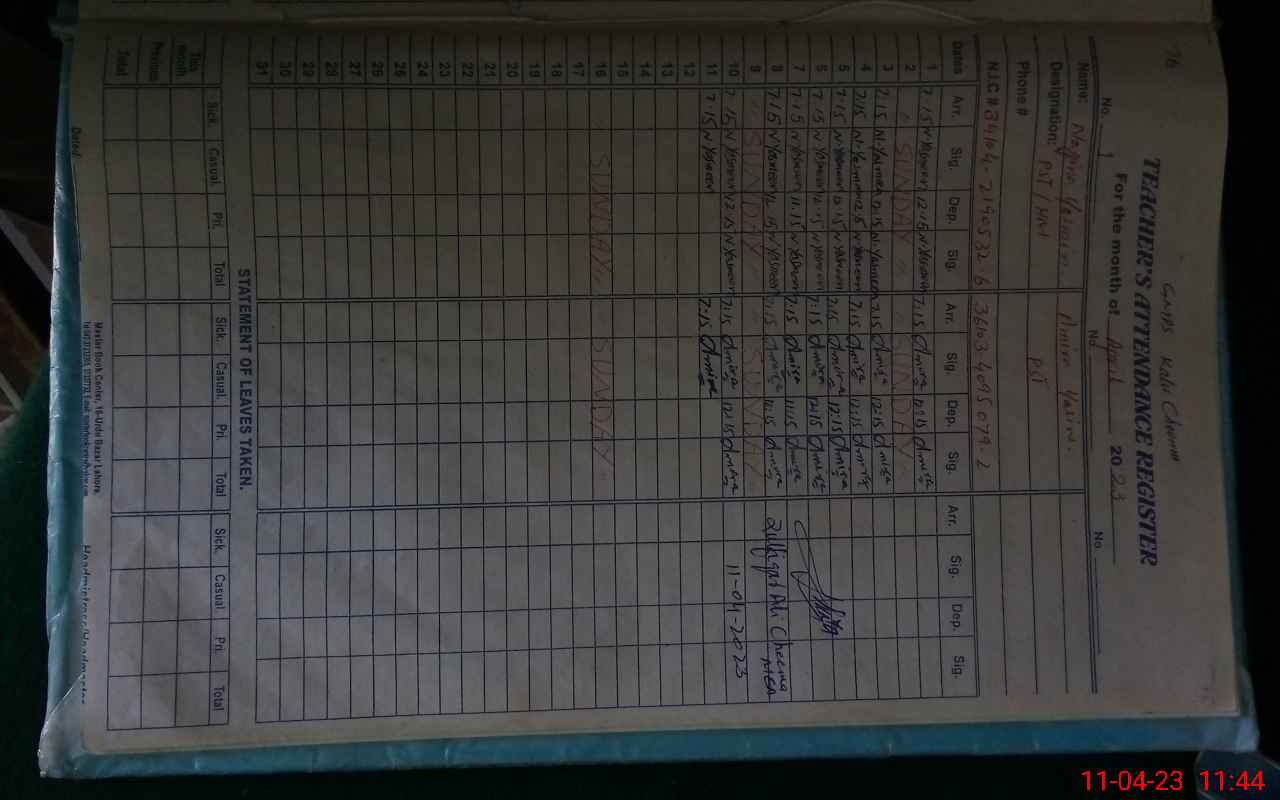 76
GMPS Kalu Cheema
TEACHER'S ATTENDANCE REGISTER
For the month of April 2023
No. 1 No. No.
Name: Nagina Yasmin Amina Yasin
Designation: PST/HM PST
Phone #
N.I.C # 34104-2190532-6 36163-4095079-2
Dates Arr. Sig. Dep. Sig. Arr. Sig. Dep. Sig. Arr. Sig. Dep. Sig.
1 7.15 N.Yasmeen 12.15 N.Yasmeen 7.15 Amina 12.15 Amina
2 SUNDAY SUNDAY
3 7.15 N.Yasmeen 12.15 N.Yasmeen 7.15 Amina 12.15 Amina
4 7.15 N.Yasmeen 12.15 N.Yasmeen 7.15 Amina 12.15 Amina
5 7.15 N.Yasmeen 12.15 N.Yasmeen 7.15 Amina 12.15 Amina
6 7.15 N.Yasmeen 12.15 N.Yasmeen 7.15 Amina 12.15 Amina
7 7.15 N.Yasmeen 11.15 N.Yasmeen 7.15 Amina 11.15 Amina
8 7.15 N.Yasmeen 12.15 N.Yasmeen 7.15 Amina 12.15 Amina Zulfiqat Ali Cheema
9 SUNDAY SUNDAY MEA
10 7.15 N.Yasmeen 12.15 N.Yasmeen 7.15 Amina 12.15 Amina 11-04-2023
11 7.15 N.Yasmeen 7.15 Amina
12
13
14
15
16 SUNDAY SUNDAY
17
18
19
20
21
22
23
24
25
26
27
28
29
30
31
STATEMENT OF LEAVES TAKEN.
Sick. Casual. Pri. Total Sick. Casual. Pri. Total Sick. Casual Pri. Total
This month
Previous
Total
Dated
Master Book Center, 16-Urdu Bazar Lahore.
Headmistress/Headmaster
11-04-23 11:44